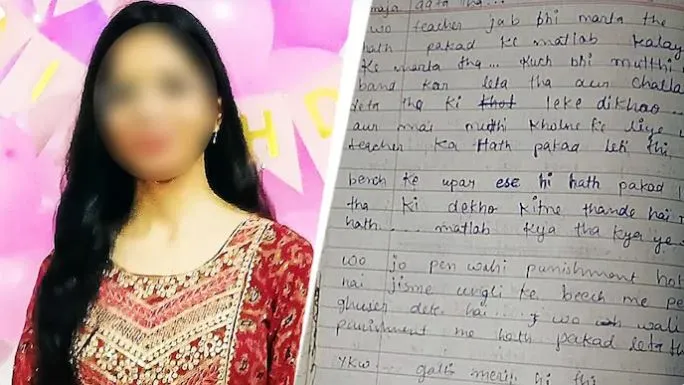 maja aata tha...
wo teacher jab bhi marta the
hath pakad ke matlab kalay
ke marta tha... kuch bhi mutthi
band kar leta tha aur challa
deta tha ki khot leke dikhao
aur mai mutthi kholne ke liye
teacher ka hath pakad leti thi
bench ke upar ese hi hath pakad
tha ki dekho kitne thande hai
hath.... matlab kya tha kya ye
wo jo pen wahi punishment hot
hai jisme ungli ke beech me pe
ghuser dete hai... wo wali
punishment me hath pakad leta th
ykw... galti meri hi thi
H D